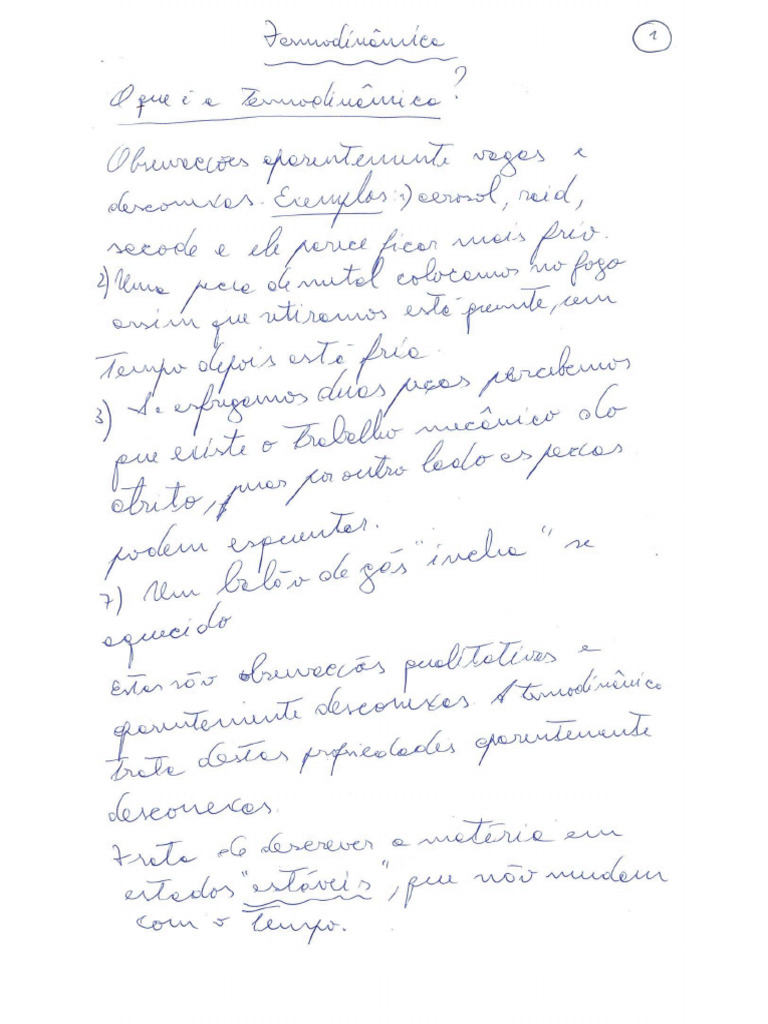 Termodinâmica
1
O que é a Termodinâmica?
Observacções aparentemente vagas e
desconexas. Exemplos: 1) aerosol, raid,
sacode e ele parece ficar mais frio.
2) Uma peca de metal colocamos no fogo
assim que retiramos está quente, um
tempo depois está fria.
3) Se esfregamos duas peças percebemos
que existe o trabalho mecânico do
atrito, mas por outro lado as peccas
podem esquentar.
7) Um balão de gás "incha" se
aquecido
Estas são observacções qualitativas e
aparentemente desconexas. A termodinâmica
trata destas propriedades aparentemente
desconexas.
Trata de descrever a matéria em
estados "estáveis", que não mudam
com o Tempo.